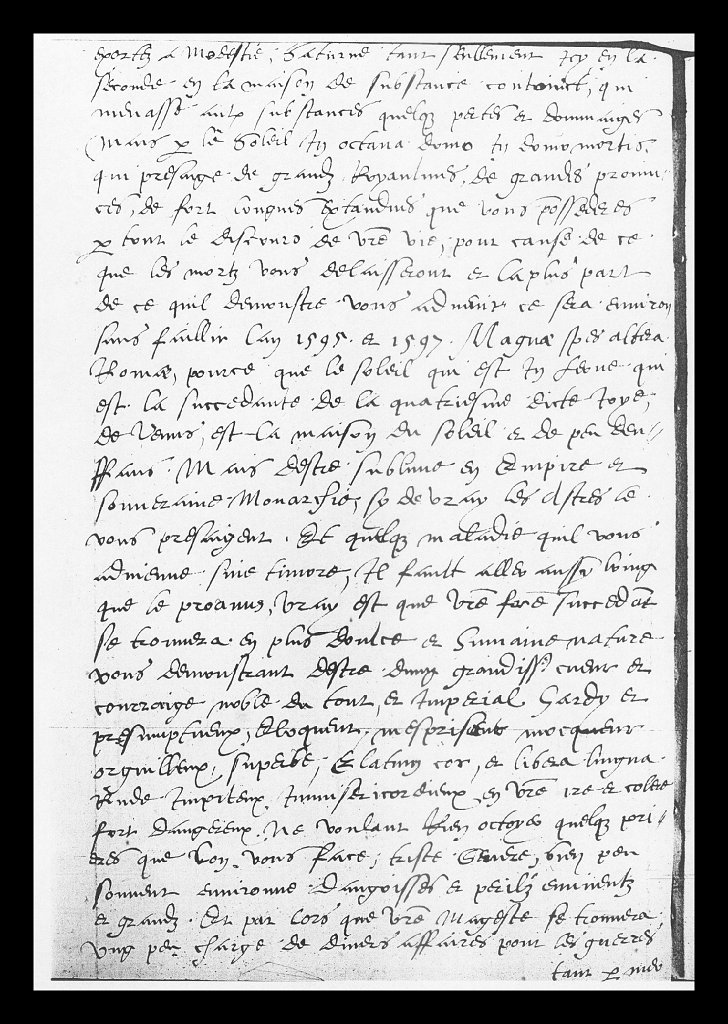 exortez a Modestie, Saturne tant seullement Icy en la
seconde en la maison de substance contoinct, qui
menasse aulx substances quelq pertes et dommaiges
Mais p le Soleil In octana domo In domo mortis,
qui presaige de grandz Royaulmes, de grandes prouin-
ces, de fort longues Extandues que vous possederes
p tout le discours de vre vie, pour cause de ce
que les mortz vous delaisseront et la plus part
de ce quil demonstre vous aduenir ce sera enuiron
sans faillir lan 1595 et 1597. Magnæ spes altera
Romæ, pource que le soleil qui est In Leone qui
est la succedante de la quatriesme dicte Ioye,
de Venus, est la maison du soleil et de peu den-
ffans Mais destre sublime en Empire et
souueraine Monarchie, sy de vray les Astres le
vous presaigent. Et quelq maladie quil vous
aduienne sine timore, Il fault aller aussy loing
que le proauus, vray est que vre frere succedent
se trouuera en plus doulce et humaine nature
vous demonstrant destre dung grandiss. cueur et
courraige noble du tout, et Imperial hardy et
presumptueux, Eloquent, mesprisent mocqueur
orguilleux, superbe, Elatum cor, et libera lingua
Rude Impiteux Immisericordieux en vre ire et colere
fort dangereux. Ne voulant Rien octoyer quelq pri-
eres que lon vous face, triste tendre, bien peu
souuent enuironne dangoisses et perilz eminentz
et grandz. Et par lors que vre Mageste se trouuera
vng peu charge de diuers affaires pour les guerres
tant p mer